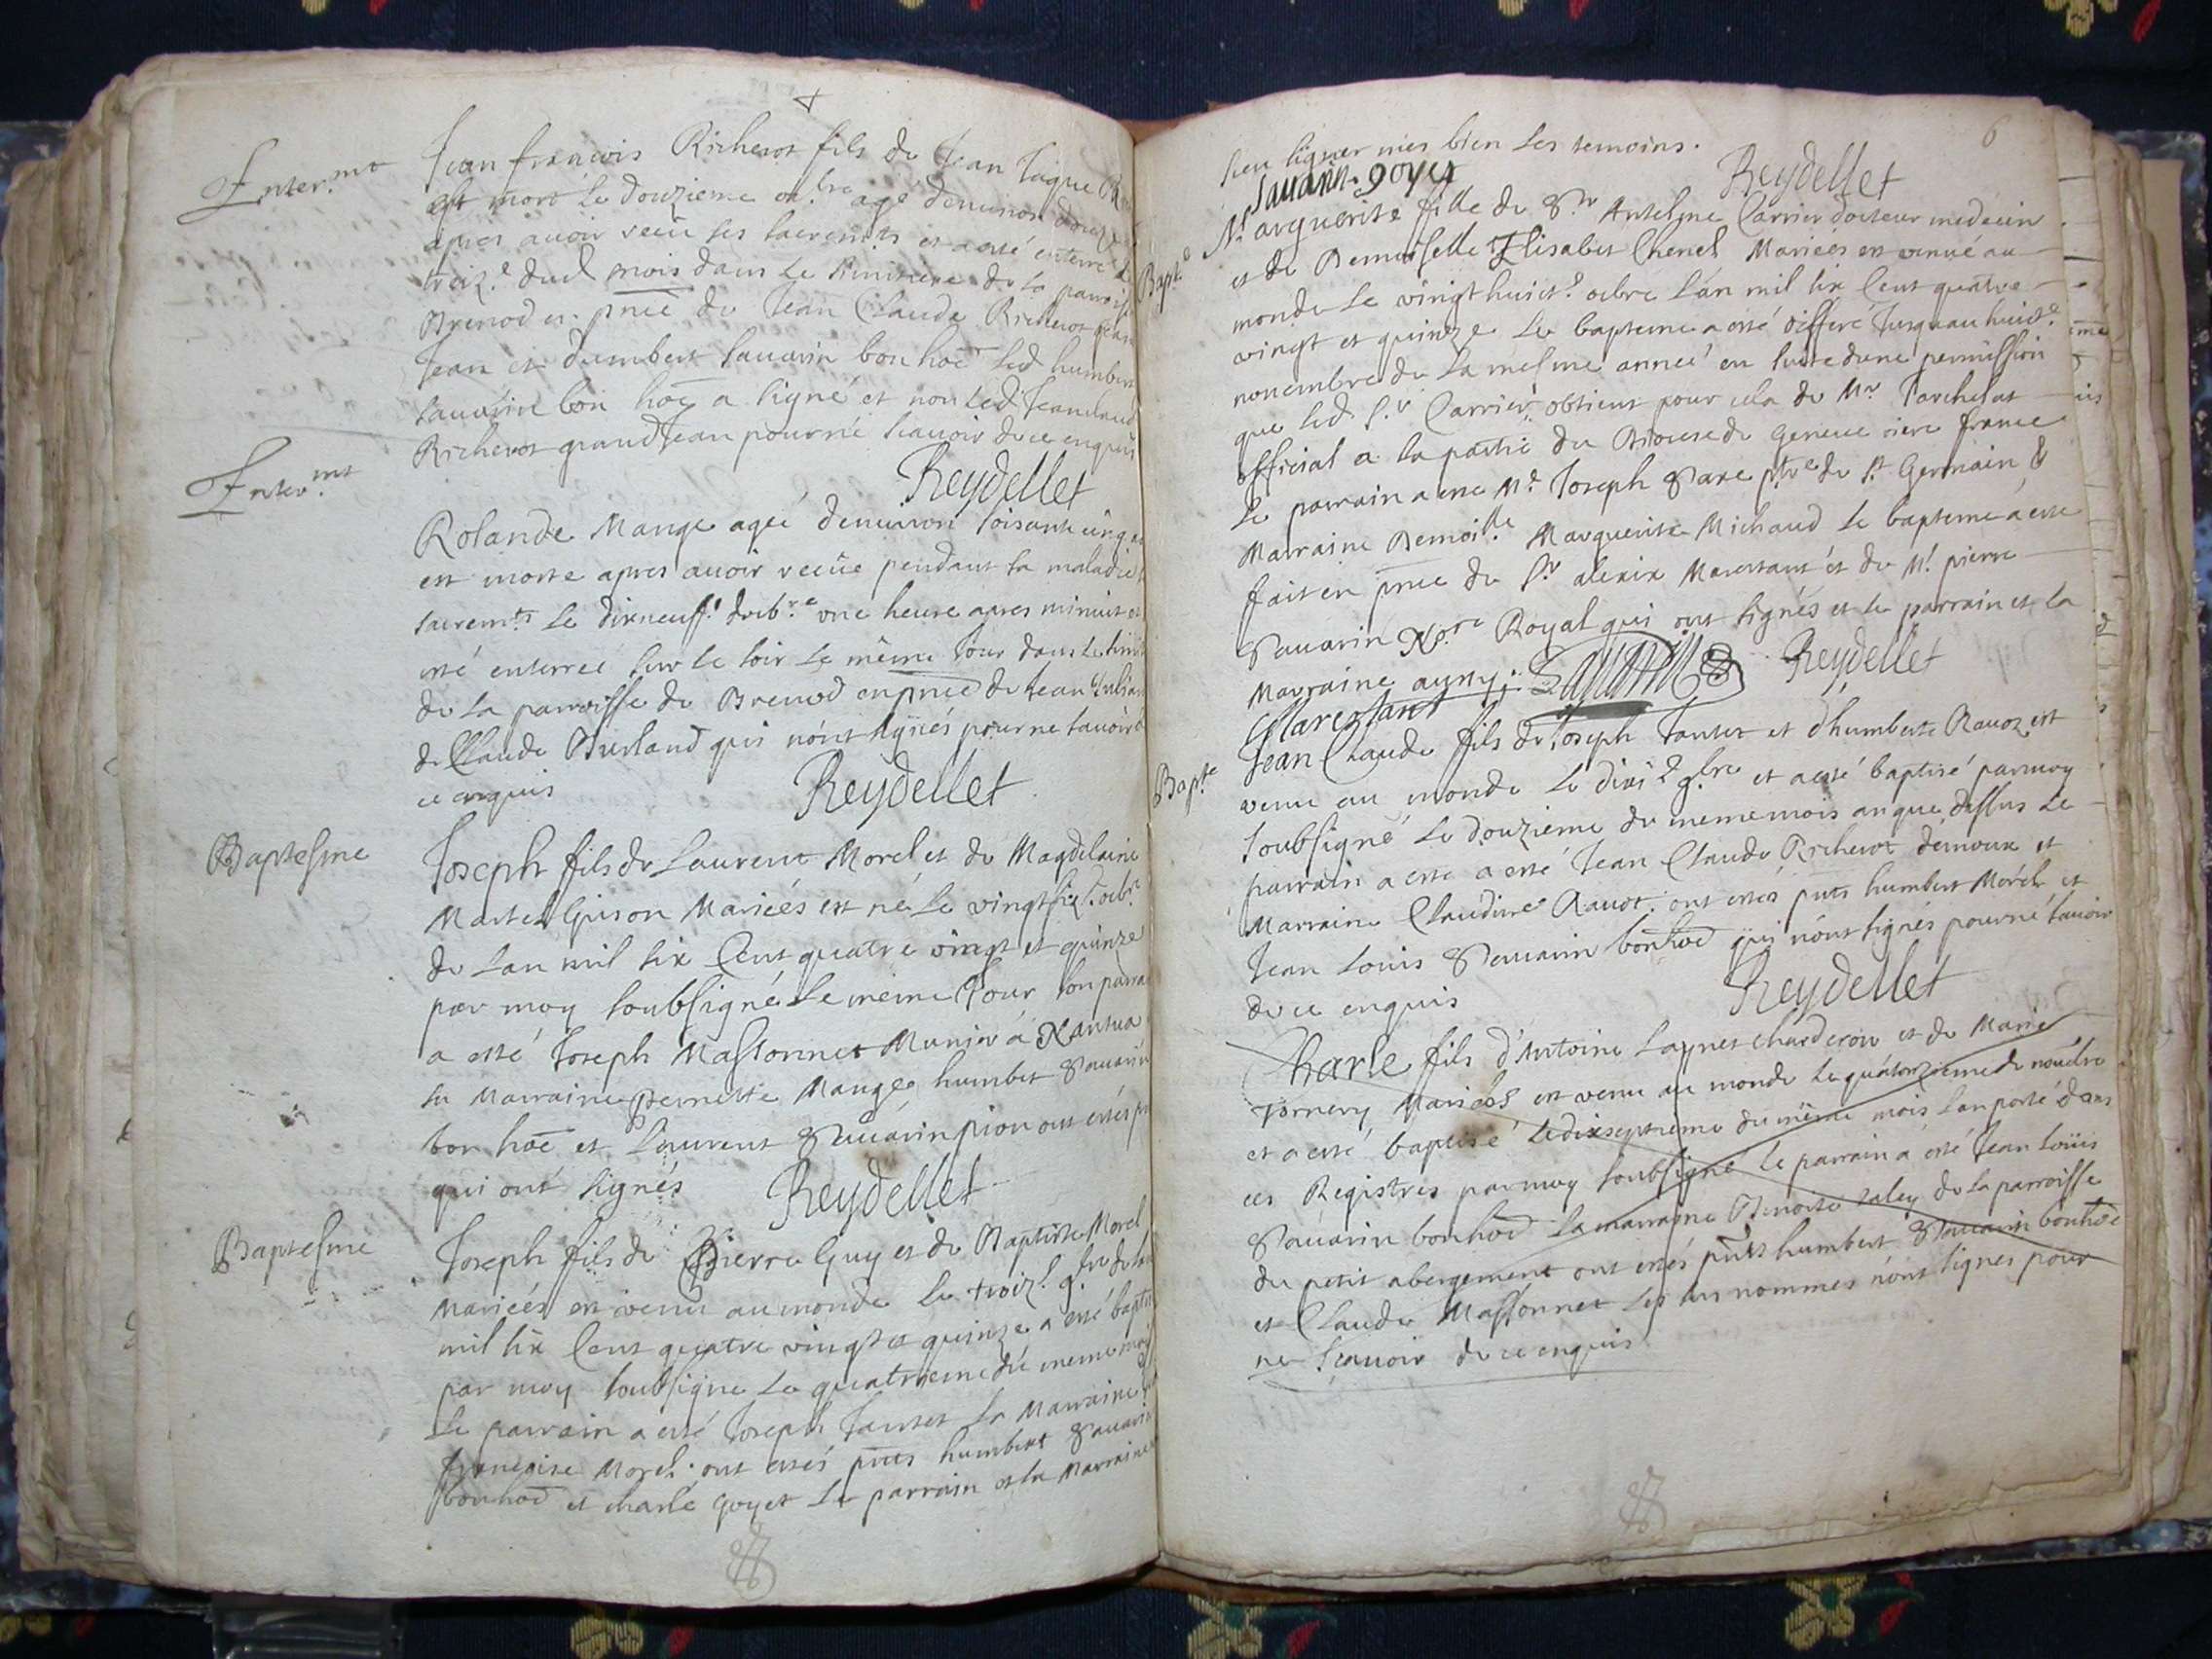 Enter.mt
Jean francois Richerot fils de Jean Jaque
est mort le douzieme oct.bre agé denuiron douze
apres auoir receu ses sacrem.ts et a esté enterré le
treiz.e dud mois dans le simitiere de la parroisse
Brenod en pnce de Jean Claude Richerot grand
Jean et dumbert sauarin bon hoe led humbert
sauarin bon hoe a signé et non led Jean claude
Richerot grand Jean pour ne scauoir de ce enquis
Reydellet
Enter.mt
Rolande Mange ageé denuiron soisante cinq
est morte apres auoir receüe pendant sa maladie
sacrem.ts le dixneuf.e doctb.re vne heure apres minuit et
esté enterreé sur le soir le même Jour dans le
de la parroisse de Brenod en pnce de Jean
de Claude Burland qui nónt signés pour ne sauoir
ce enquis
Reydellet
Baptesme
Joseph fils de Laurent Morel et de Magdelaine
Martel Grison Mariéés est né le vingt six.e octb.re
de lan mil six Cent quatre vingt et quinze
par moy soubsigné le méme Jour son parrain
a esté Joseph Massonnet Munier á Nantua
sa Marraine Pernette Mange humbert Sauarin
bon hoe et Laurent Sauarin pion ont estés
qui ont signés
Reydellet
Baptesme
Joseph fils de Pierre Guy et de Baptiste Morel
Mariéés est venu au monde le troiz.e 9.bre de lan
mil six Cent quatre vingt et quinze a esté baptisé
par moy soubsigné le quatrieme du meme mois
le parrain a esté Joseph Tantet la Marraine
francoise Morel. ont estés pnts humbert Sauarin
bonhoe et charle Goyet le parrain et la Marraine
6
sceu signer mes bien les temoins.
Sauarin. goyet
Reydellet
Bapt.e
Marguerite fille de S.r Antelme Carrier docteur medecin
et de Demoiselle Elisabet Chenel Mariéés est venuë au
monde le vingt huict.e octbre lán mil six Cent quatre
vingt et quinze le bapteme a esté differé Jusqu au huict.e
nouembre de la mesme anneé en suite dune permission
que led. S.r Carrier obtient pour cela de M.r
official a la partie du Diocese de Geneue riere france
le parrain a esté M.e Joseph pbre de S.t Germain &
Marraine Demoi.lle Marguerite Michaud le bapteme a esté
fait en pnce de S.r alexix Marestant et de M.e pierre
Sauarin No.re Royal qui ont signés et le parrain et la
Marraine aussy.
Sauarin
Reydellet
Marestant
Bapt.e
Jean Claude fils de Joseph Tantet et d'humberte Rauoz est
venu au monde le dixi.e 9.bre et a esté baptisé par moy
soubsigné le douzieme du meme mois an que dessus le
parrain a esté a esté Jean Claude Richerot et
Marraine Claudine Rauot. ont estés pnts humbert Morel et
Jean Louis Sauarin bonhoe qui nónt signés pour ne sauoir
de ce enquis
Reydellet
Charle fils d'Antoine Laynet charderon et de Marie
Tornery Mariéés est venu au monde le quátorzieme de nouebre
et a esté baptisé le dixseptieme du méme mois lan porté dans
ces Registres par moy soubsigné le parrain a esté Jean Loüis
Sauarin bonhoe la marraine Benoite de la parroisse
du petit abergement ont estés pnts humbert Sauarin bonhoe
et Claude Massonnet les sus nommés nónt signes pour
ne scauoir de ce enquis